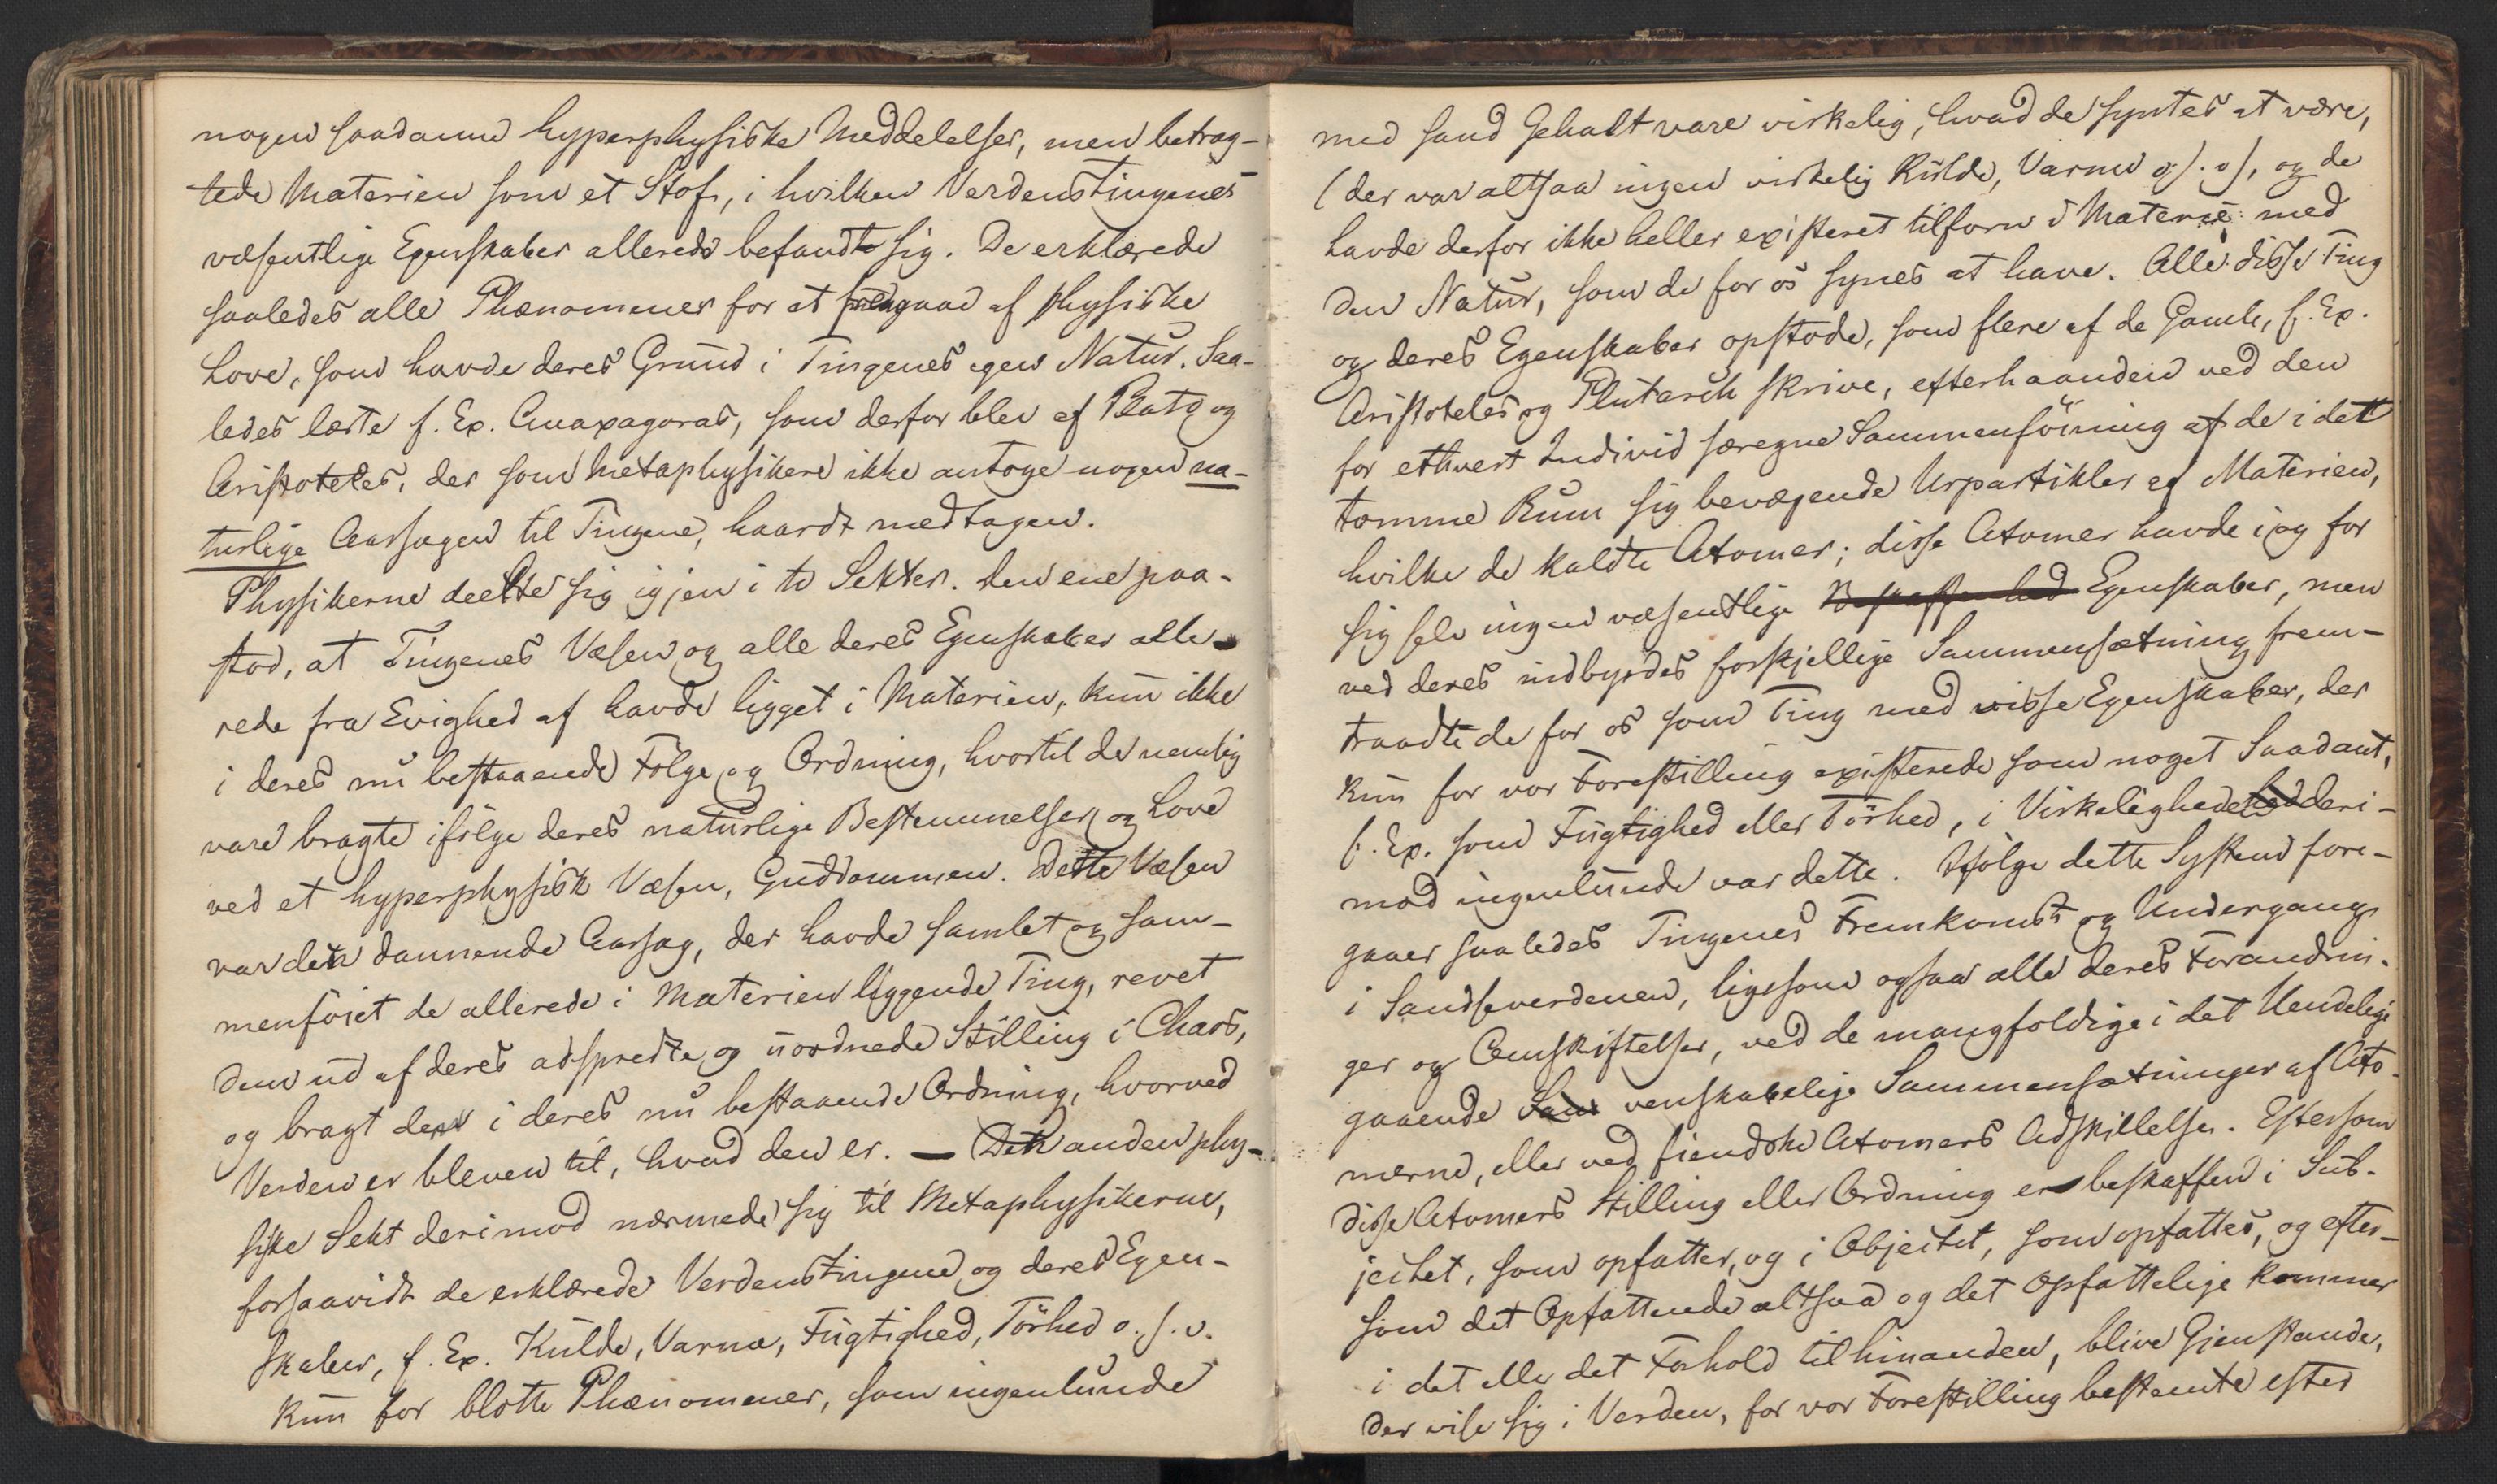 nogen saadanne hyperphysiske Meddelelser, men betrag-
tede Materien som et Stof, i hvilken Verdenstingenes
væsentlige Egenskaber allerede befandt sig. De erklærede
saaledes alle Phænomener for at fremgaae af physiske
Love, som havde deres Grund i Tingenes egen Natur. Saa-
ledes lærte f. Ex. Anaxagoras, som derfor blev af Plato og
Aristoteles, der som Metaphysikere ikke antoge nogen na-
turlige Aarsager til Tingene, haardt medtagen.
Physikerne deelte sig igjen i to Sekter. Den ene paa-
stod, at Tingenes Væsen og alle deres Egenskaber alle-
rede fra Evighed af havde ligget i Materien, kun ikke
i deres nu bestaaende Følge og Ordning, hvortil de nemlig
vare bragte ifølge deres naturlige Bestemmelser og Love
ved et hyperphysisk Væsen, Guddommen. Dette Væsen
var den dannende Aarsag, der havde samlet og sam-
menføiet de allerede i Materien liggende Ting, revet
dem ud af deres adspredte og uordnede Stilling i Chaos,
og bragt dem i deres nu bestaaende Ordning, hvorved
Verden er bleven til, hvad den er. — Den anden phy-
siske Sekt derimod nærmede sig til Metaphysikerne,
forsaavidt de erklærede Verdenstingene og deres Egen-
skaber, f. Ex. Kulde, Varme, Fugtighed, Tørhed o. s. v.
kun for blotte Phænomener, som ingenlunde
med sand Gehalt vare virkelig, hvad de syntes at være,
(der var altsaa ingen virkelig Kulde, Varme o. s. v), og de
havde derfor ikke heller existeret tilforn i Materie med
den Natur, som de for os synes at have. Alle disse Ting
og deres Egenskaber opstode, som flere af de Gamle, f. Ex.
Aristoteles og Plutarch skrive, efterhaanden ved den
for ethvert Individ særegne Sammenføining af de i det
tomme Rum sig bevægende Urpartikler af Materien,
hvilke de kaldte Atomer; disse Atomer havde i og for
sig selv ingen væsentlige Beskaffenhed Egenskaber, men
ved deres indbyrdes forskjellige Sammensætning frem-
traadte de for os som Ting med visse Egenskaber, der
kun for vor Forestilling existerede som noget Saadant,
f. Ex. som Fugtighed eller Tørhed, i Virkeligheden deri-
mod ingenlunde var dette. Ifølge dette System fore-
gaaer saaledes Tingenes Fremkomst og Undergang
i Sandseverdenen, ligesom ogsaa alle deres Forandrin-
ger og Omskiftelser, ved de mangfoldige i det Uendelige
gaaende Sam venskabelige Sammensætninger af Ato-
merne, eller ved fiendske Atomers Adskillelse. Eftersom
disse Atomers Stilling eller Ordning er beskaffen i Sub-
jectet, som opfatter, og i Objectet, som opfattes, og efter-
som det Opfattende altsaa og det Opfattelige kommer
i det eller det Forhold til hinanden, blive Gjenstande,
der vise sig i Verden, for vor Forestilling bestemte efter